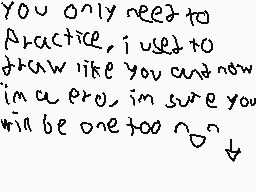 you only need to
Practice, i used to
draw like you and now
im a pro, im sure you
will be one too ^o^